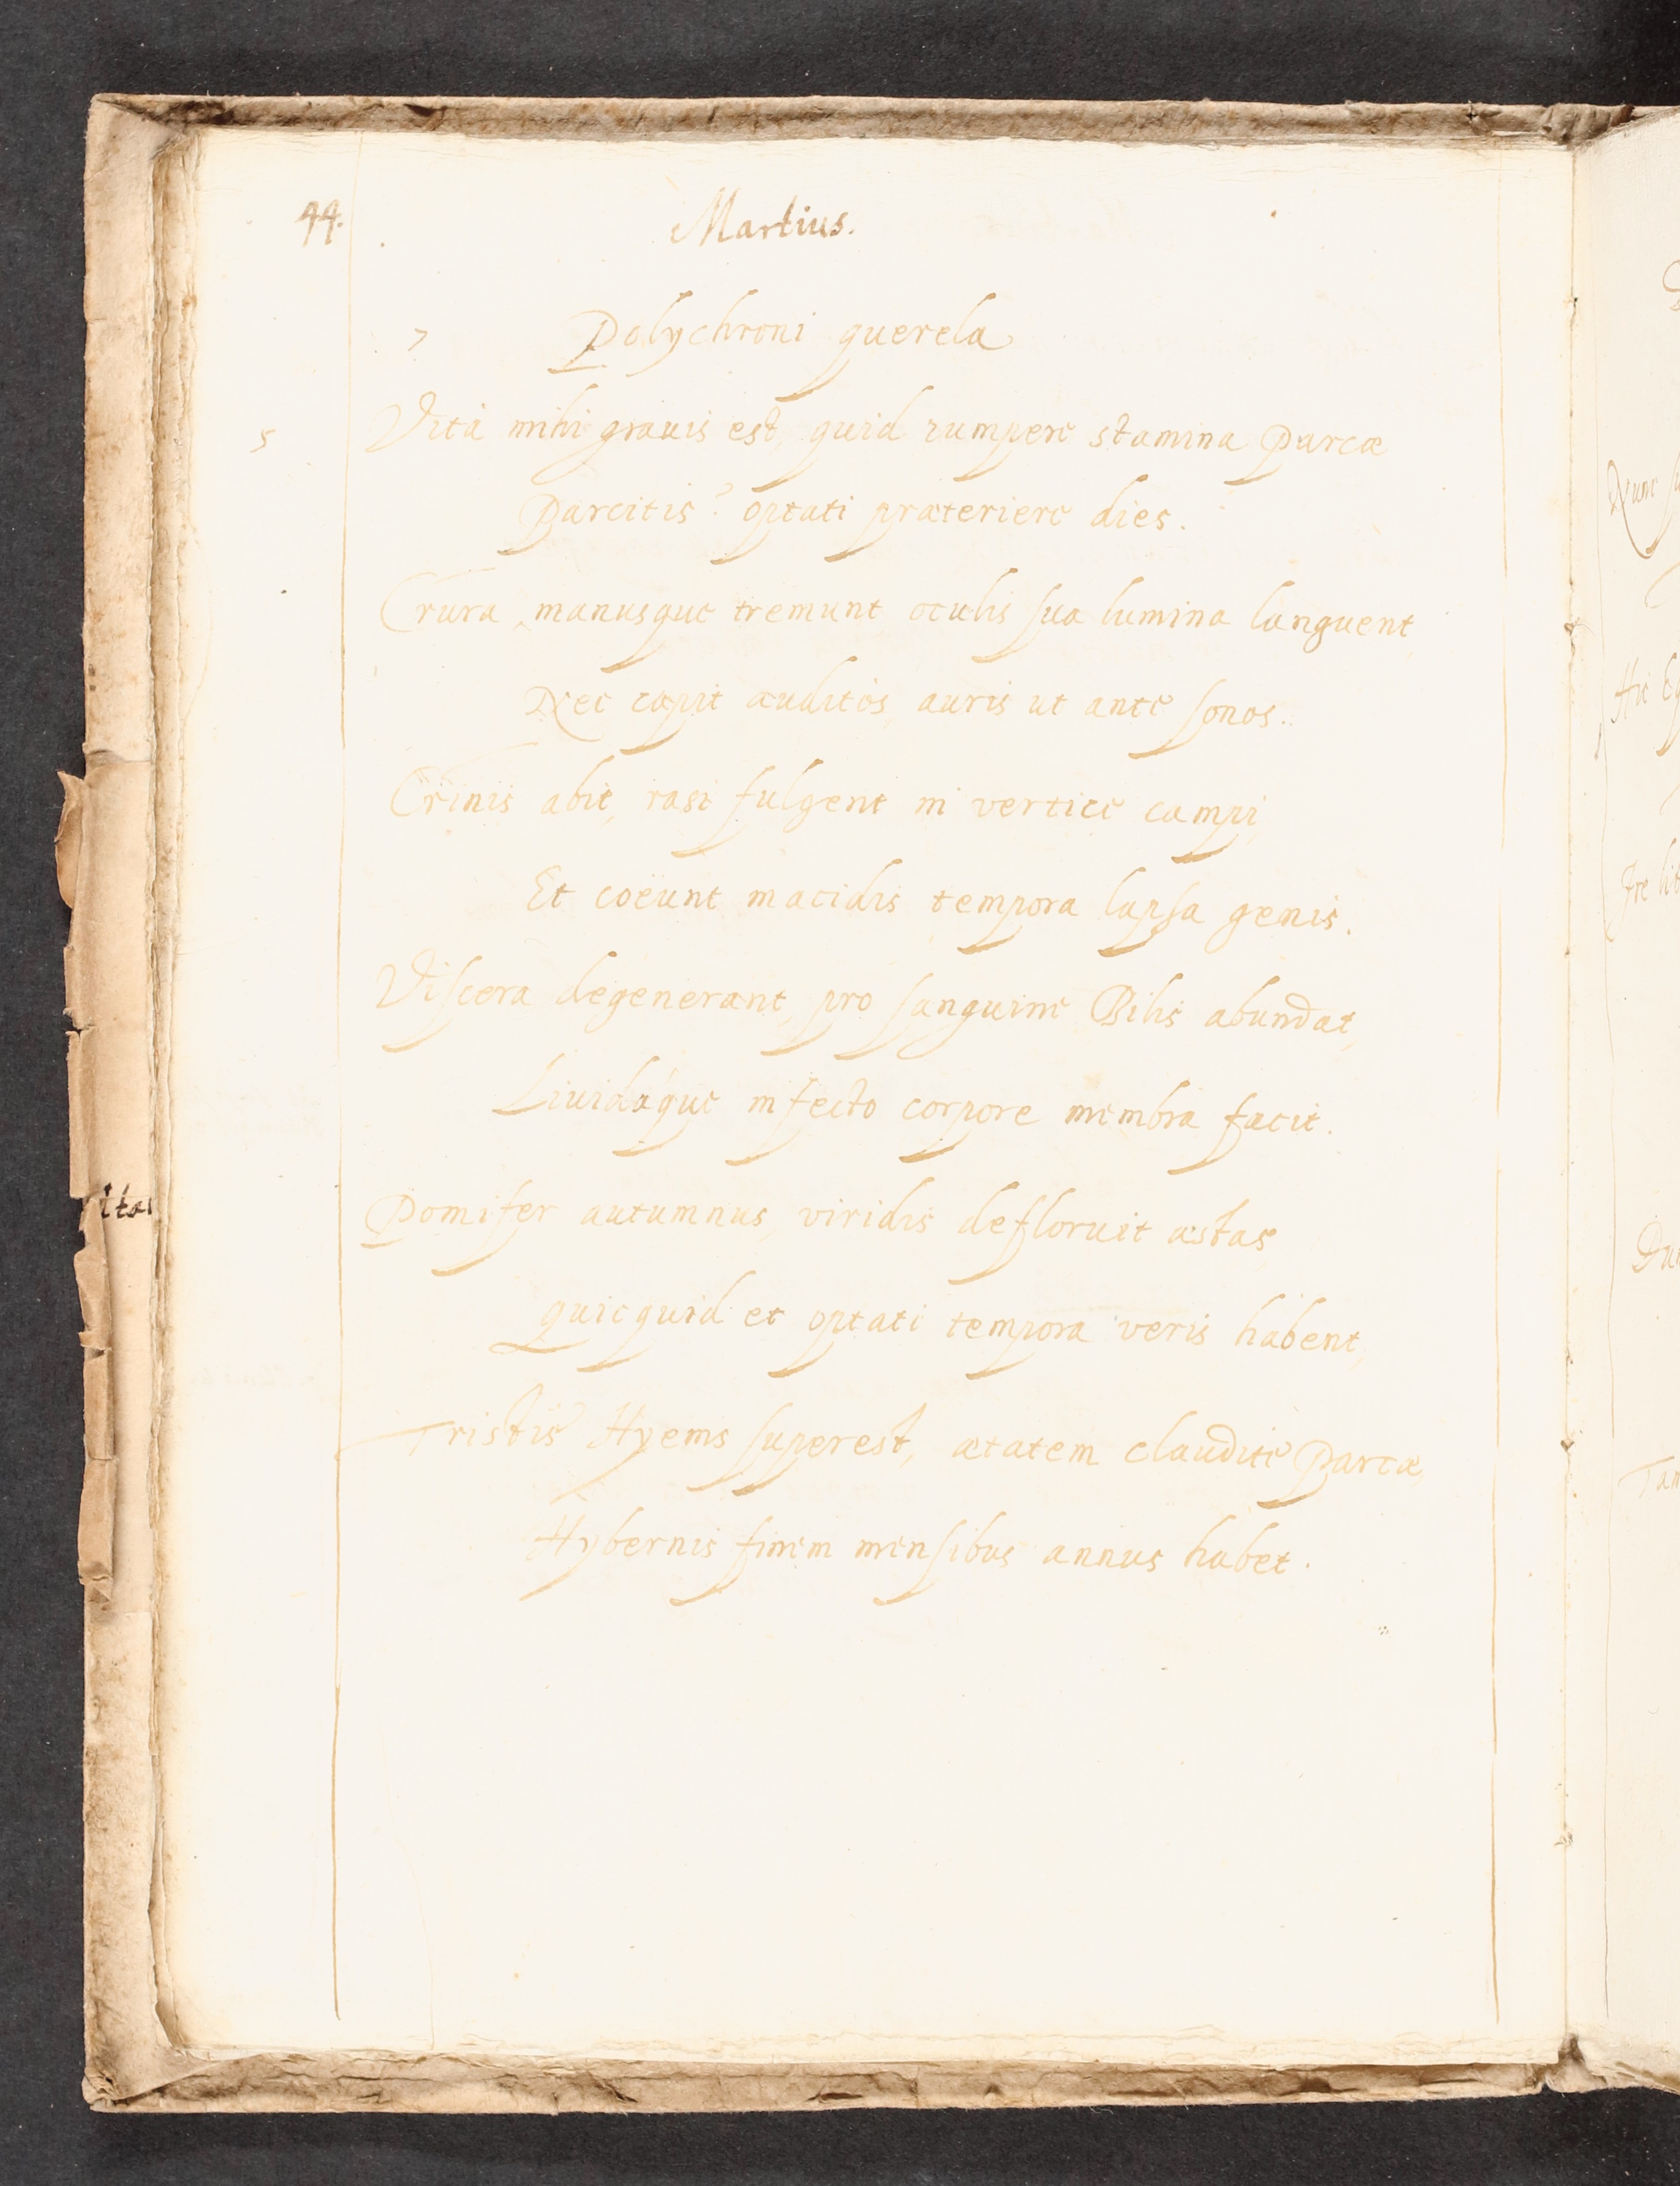 44. Martius.
7 Polychroni querela
5 Vita mihi grauis est, quid rumpere stamina Parcæ
Parcitis? optati præteriere dies.
Crura, manusque tremunt oculis sua lumina languent,
Nec capit auditos, auris ut ante sonos.
Crinis abit, rasi fulgent in vertice campi,
Et coëunt macidis tempora lapsa genis.
Viscera degenerant, pro sanguine Bilis abundat,
Liuidáque infecto corpore membra facit.
Pomifer autumnus, viridis defloruit æstas,
Quicquid et optati tempora veris habent,
Tristis Hyems superest, ætatem claudite Parcæ,
Hybernis finem mensibus annus habet.
Nunc
Hic